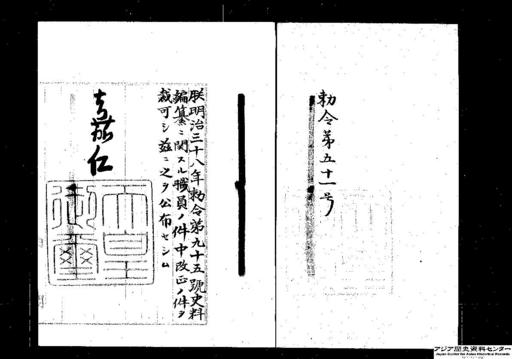 勅令第五十一号
朕明治三十八年勅令第九十五號史料
編纂ニ関スル職員ノ件中改正ノ件ヲ
裁可シ茲ニ之ヲ公布セシム
嘉仁
天皇御璽
アジア歴史資料センター
Japan Center for Asian Historical Records